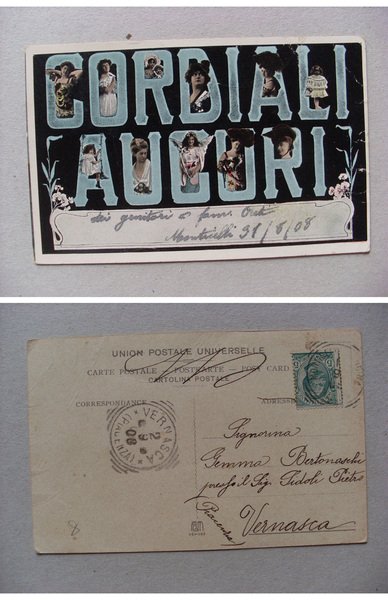 CORDIALI
AUGURI
dei genitori e fam.
Monticelli 31/8/08
UNION POSTALE UNIVERSELLE
CARTE POSTALE – POSTKARTE – POST CARD
CARTOLINA POSTALE
CORRESPONDANCE
VERNASCA
(PIACENZA)
2 9
08
Signorina
Gemma Bertonaschi
presso il Sig. Sidoli Pietro
Piacenza
Vernasca
8